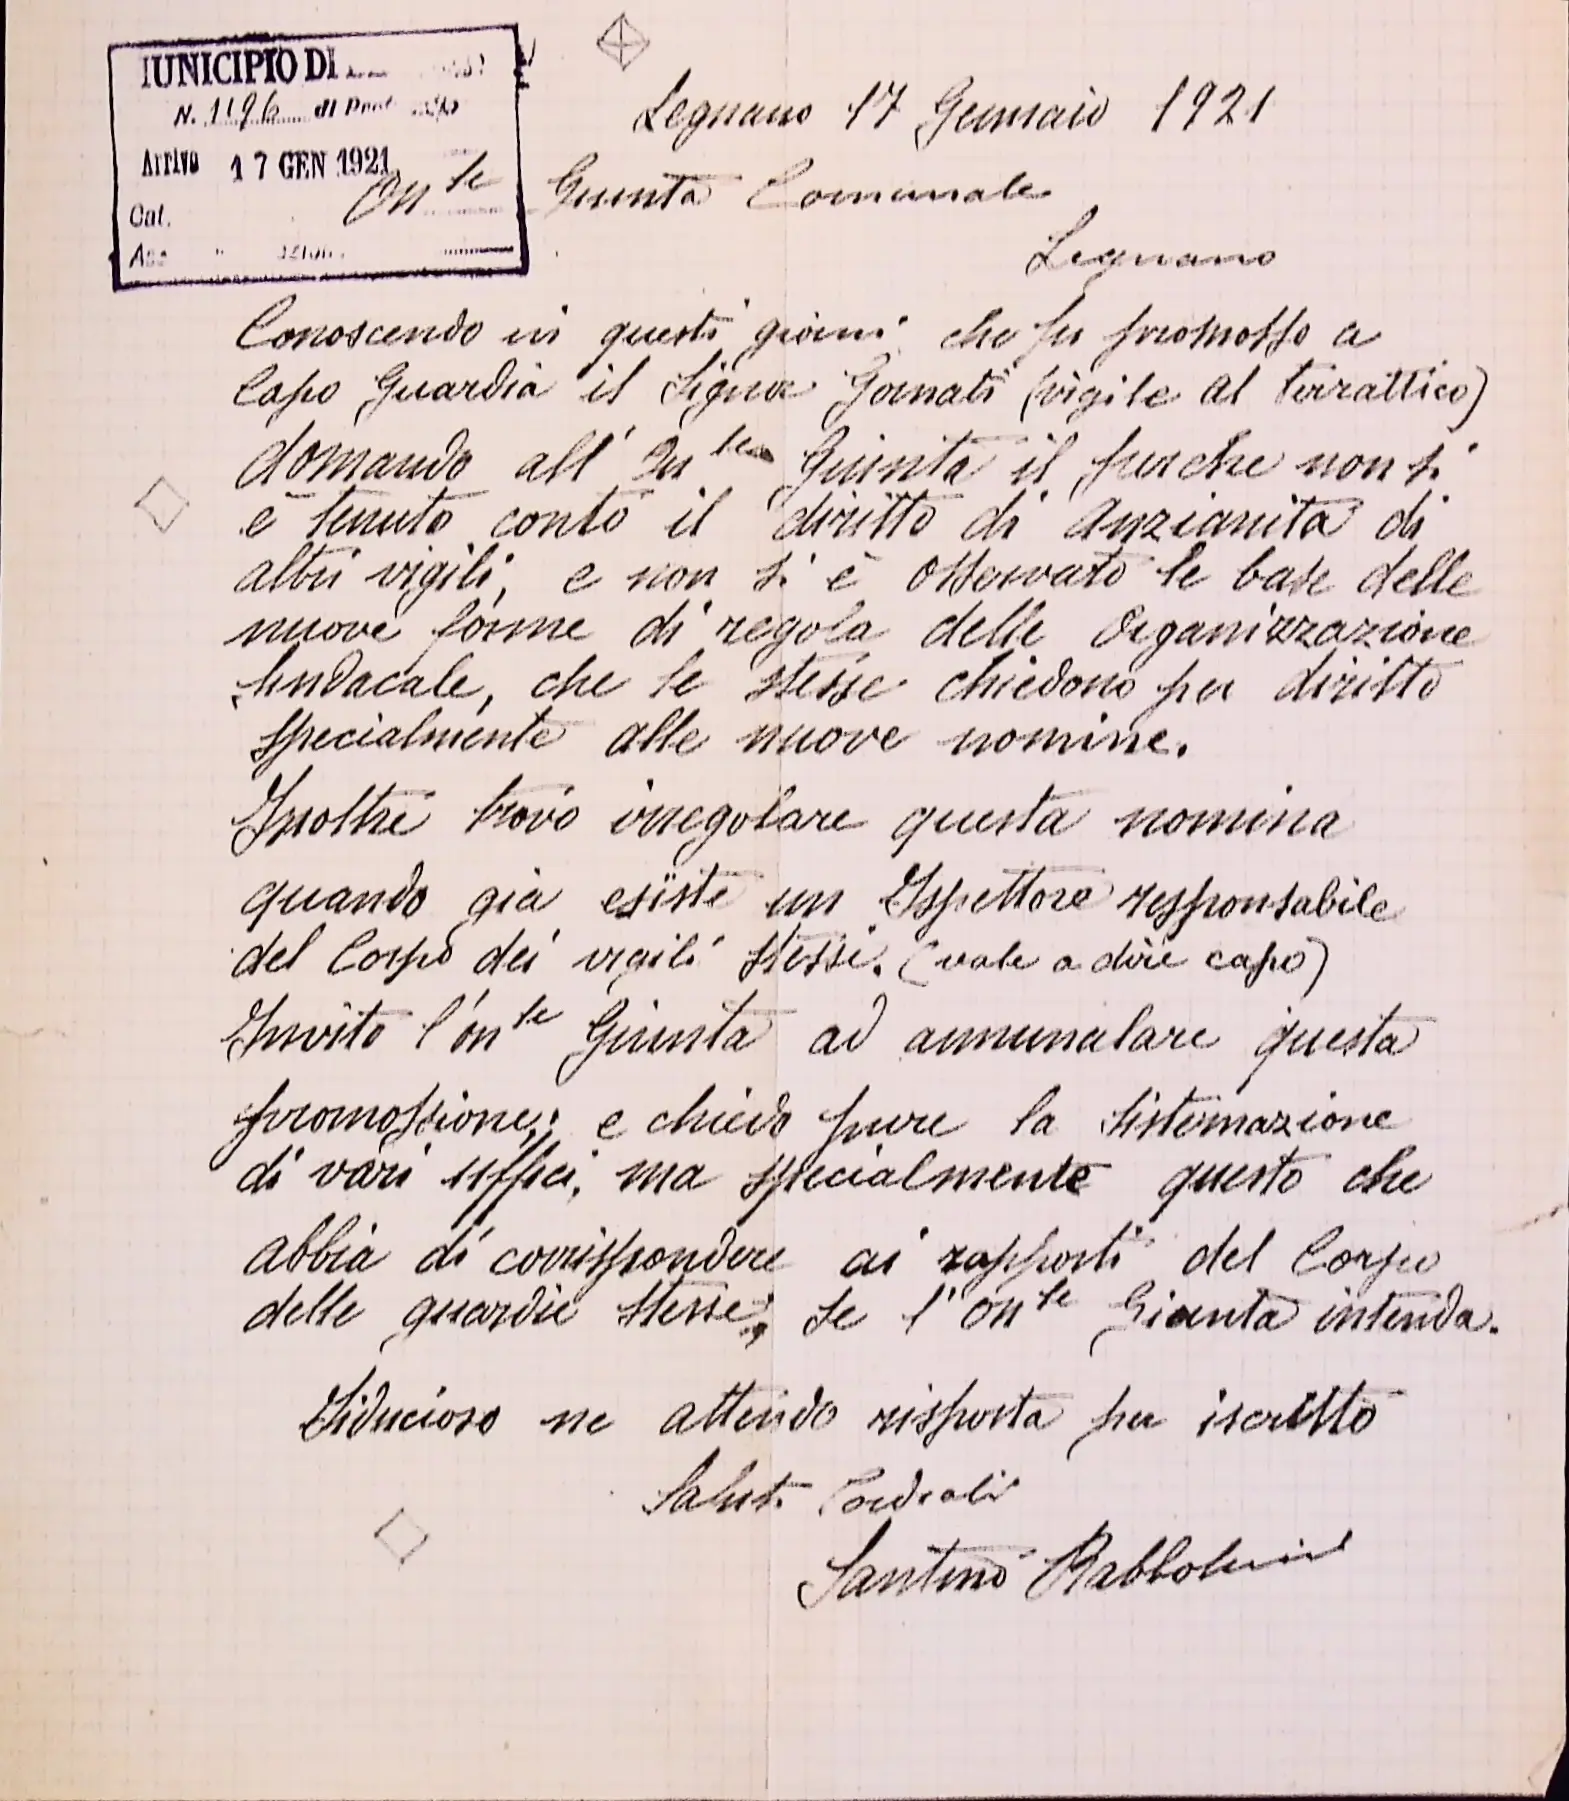 MUNICIPIO DI
N. 1196 di Prot.
Arrivo 17 GEN 1921
Cat.
Legnano 17 Gennaio 1921
On le Giunta Comunale
Legnano
Conoscendo in questi giorni che fu promosso a
Capo Guardia il Signor Gornati (vigile al terrattico)
domando all' On le Giunta il perche non si
è tenuto conto il diritto di Anzianita di
altri vigili, e non si è osservato le base delle
nuove forme di regola delle Organizzazione
Sindacale, che le stesse chiedono per diritto
specialmente alle nuove nomine.
Inoltre trovo irregolare questa nomina
quando già esiste un Ispettore responsabile
del Corpo dei vigili stessi. (vale a dire capo)
Invito l'on le Giunta ad annunalare questa
promossione; e chiedo pure la sistemazione
di vari uffici, ma specialmente questo che
abbia di corrispondere ai rapporti del Corpo
delle guardie stesse; se l'On le Giunta intenda.
Fiducioso ne attendo risposta per iscritto
Saluti Cordiali
Santino Rabbolini